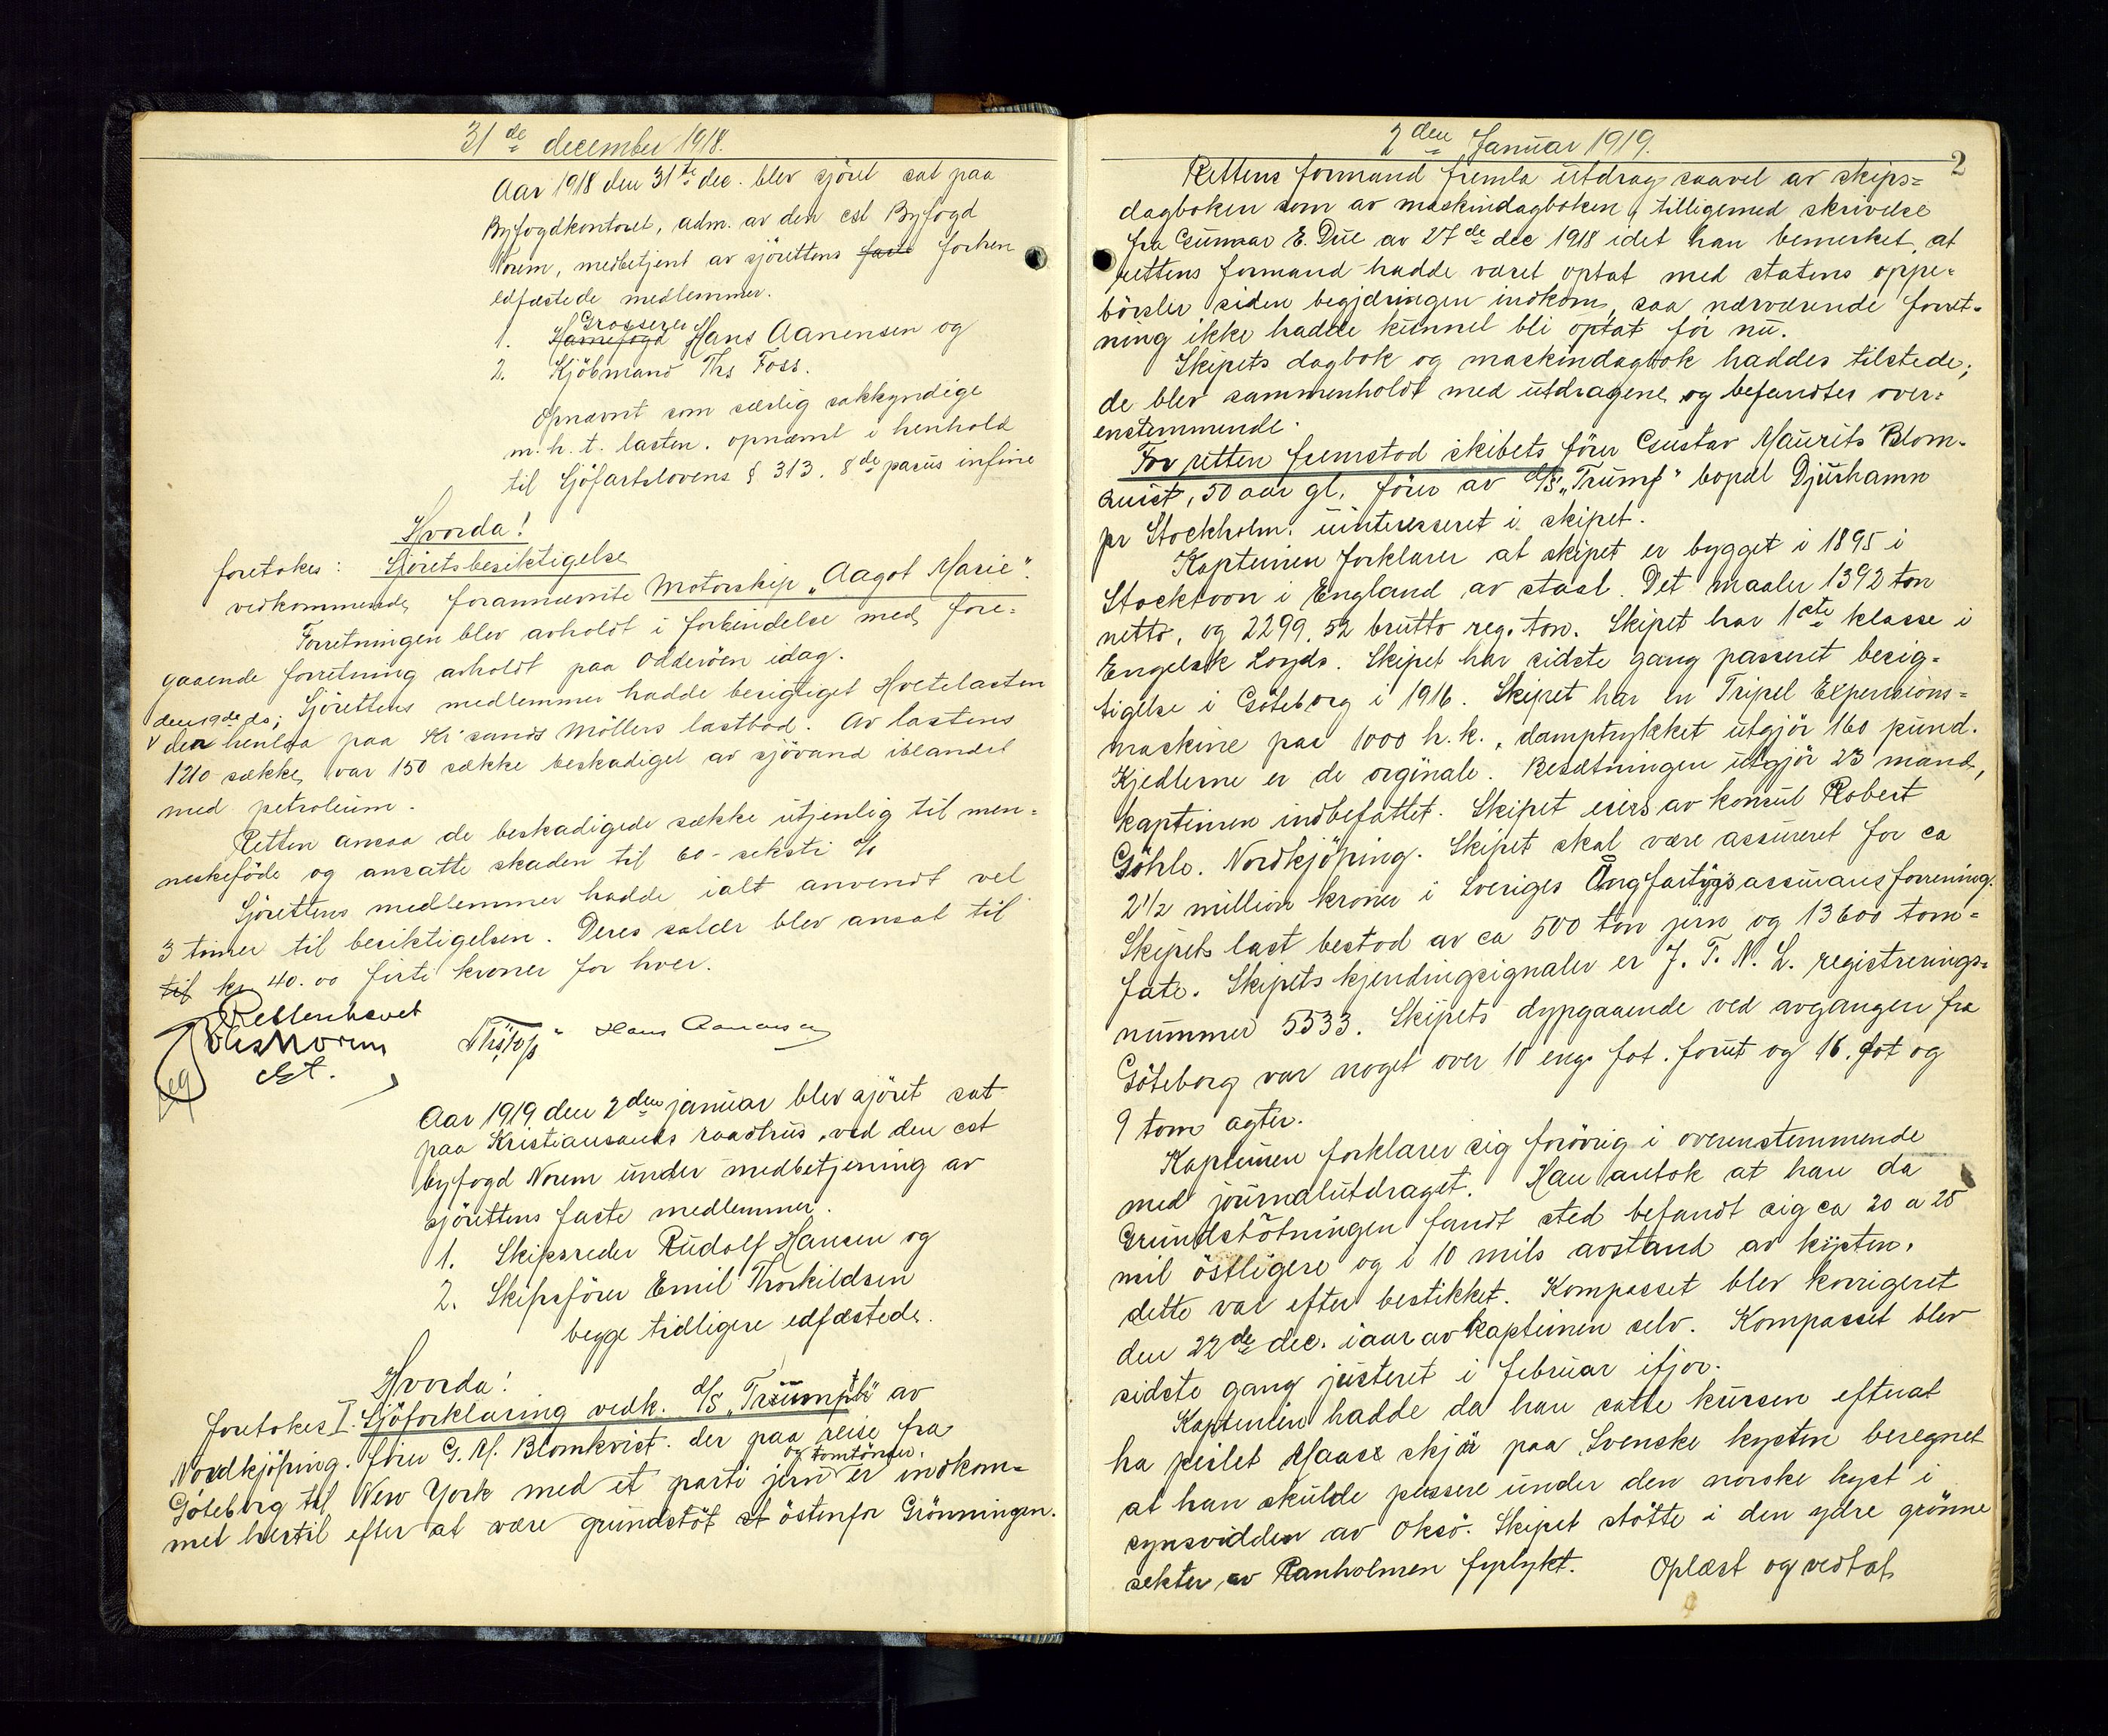 31de december 1918.
Aar 1918 den 31te dec. blev sjöret sat paa
Byfogdkontoret, adm. av den cst Byfogd
Norem, medbetjent av sjörettens faste forhen
edfæstede medlemmer.
Grosserer
1. Havnefogd Hans Aanensen og
2. Kjöbmand Ths Foss.
Opnævnt som særlig sakkyndige
m.h.t. lasten. opnæmt i henhold
til Sjöfartslovens § 313. 8de passus infine
Hvorda!
foretokes: Sjöretsbesiktigelse
vedkommende forannævnte Motorskip „Aagot Marie".
Forretningen blev avholdt i forbindelse med fore-
gaaende forretning avholdt paa Odderöen idag.
Sjörettens medlemmer hadde besigtiget Hvetelasten
den 19de ds;
den henlaa paa Kr'sands Möllers lastbod. Av lastens
1210 sække var 150 sække beskadiget av sjövand iblandet
med petroleum.
Retten ansaa de beskadigede sække utjenlig til men-
neskeföde og ansatte skaden til 60 - seksti %
Sjörettens medlemmer hadde ialt anvendt vel
3 timer til besiktigelsen. Deres salær blev ansat til
til kr 40.00 firti kroner for hver.
Retten hævet
Norem
cst.
Ths Foss Hans Aanensen
Aar 1919 den 2den januar blev sjöret sat
paa Kristiansands raadhus, ved den cst
byfogd Norem under medbetjening av
sjörettens faste medlemmer.
1. Skipsreder Rudolf Hansen og
2. Skipsförer Emil Thorkildsen
begge tidligere edfæstede.
Hvorda!
foretokes I. Sjöforklaring vedk. d/s „Triumph" av
Nordkjöping. förer G. M. Blomkvist. der paa reise fra
og tomtönder.
Göteborg til New York med et parti jern er indkom-
met hertil efter at være grundstöt st östenfor Grönningen.
2den Januar 1919.
2
Rettens formand fremla utdrag saavel av skips-
dagboken som av maskindagboken, tilligemed skrivelse
fra Gunnar E. Due av 27de dec 1918 idet han bemerket, at
rettens formand hadde været optat med statens oppe-
börsler siden begjæringen indkom, saa nærværende forret-
ning ikke hadde kunnet bli optat för nu.
Skipets dagbok og maskindagbok haddes tilstede;
de blev sammenholdt med utdragene og befandtes over-
enstemmende.
For retten fremstod skibets förer Gustav Maurits Blom-
quist, 50 aar gl. förer av d/s „Trumf" bopæl Djurhamn
pr Stockholm. uinteresseret i skipet.
Kapteinen forklarer at skipet er bygget i 1895 i
Stocktoon i England av staal. Det maaler 1392 ton
netto, og 2299,52 brutto reg. ton. Skipet har 1ste klasse i
Engelsk Loyds. Skipet har sidste gang passeret besig-
tigelse i Göteborg i 1916. Skipet har en Tripel Expensions-
maskine paa 1000 h.k., damptrykket utgjör 160 pund.
Kjedlerne er de orginale. Besætningen utgjör 23 mand,
kapteinen indbefattet. Skipet eies av konsul Robert
Göhle. Nordkjöping. Skipet skal være assureret for ca
2 1/2 million kroner i Sveriges Ångfartygsassuransforrening.
Skipets last bestod av ca 500 ton jern og 13600 tom-
fate. Skipets kjendingssignaler er J. T. N. L. registrerings-
nummer 5533. Skipets dypgaaende ved avgangen fra
Göteborg var noget over 10 eng. fot. forut og 16. fot og
9 tom agter.
Kapteinen forklarer sig forövrig i overenstemmende
med journalutdraget. Han antok at han da
Grundstötningen fandt sted befandt sig ca 20 a 25
mil östligere og i 10 mils avstand av kysten.
dette var efter bestikket. Kompasset blev korrigeret
den 22de dec. iaar av kapteinen selv. Kompasset blev
sidste gang justeret i februar ifjor.
Kapteinen hadde da han satte kursen efterat
ha peilet Maase skjär paa Svenske kysten beregnet
at han skulde passere under den norske kyst i
synsvidden av Oksö. Skipet stötte i den ydre grönne
sekter av Ranholmen fyrlykt. Oplæst og vedtat